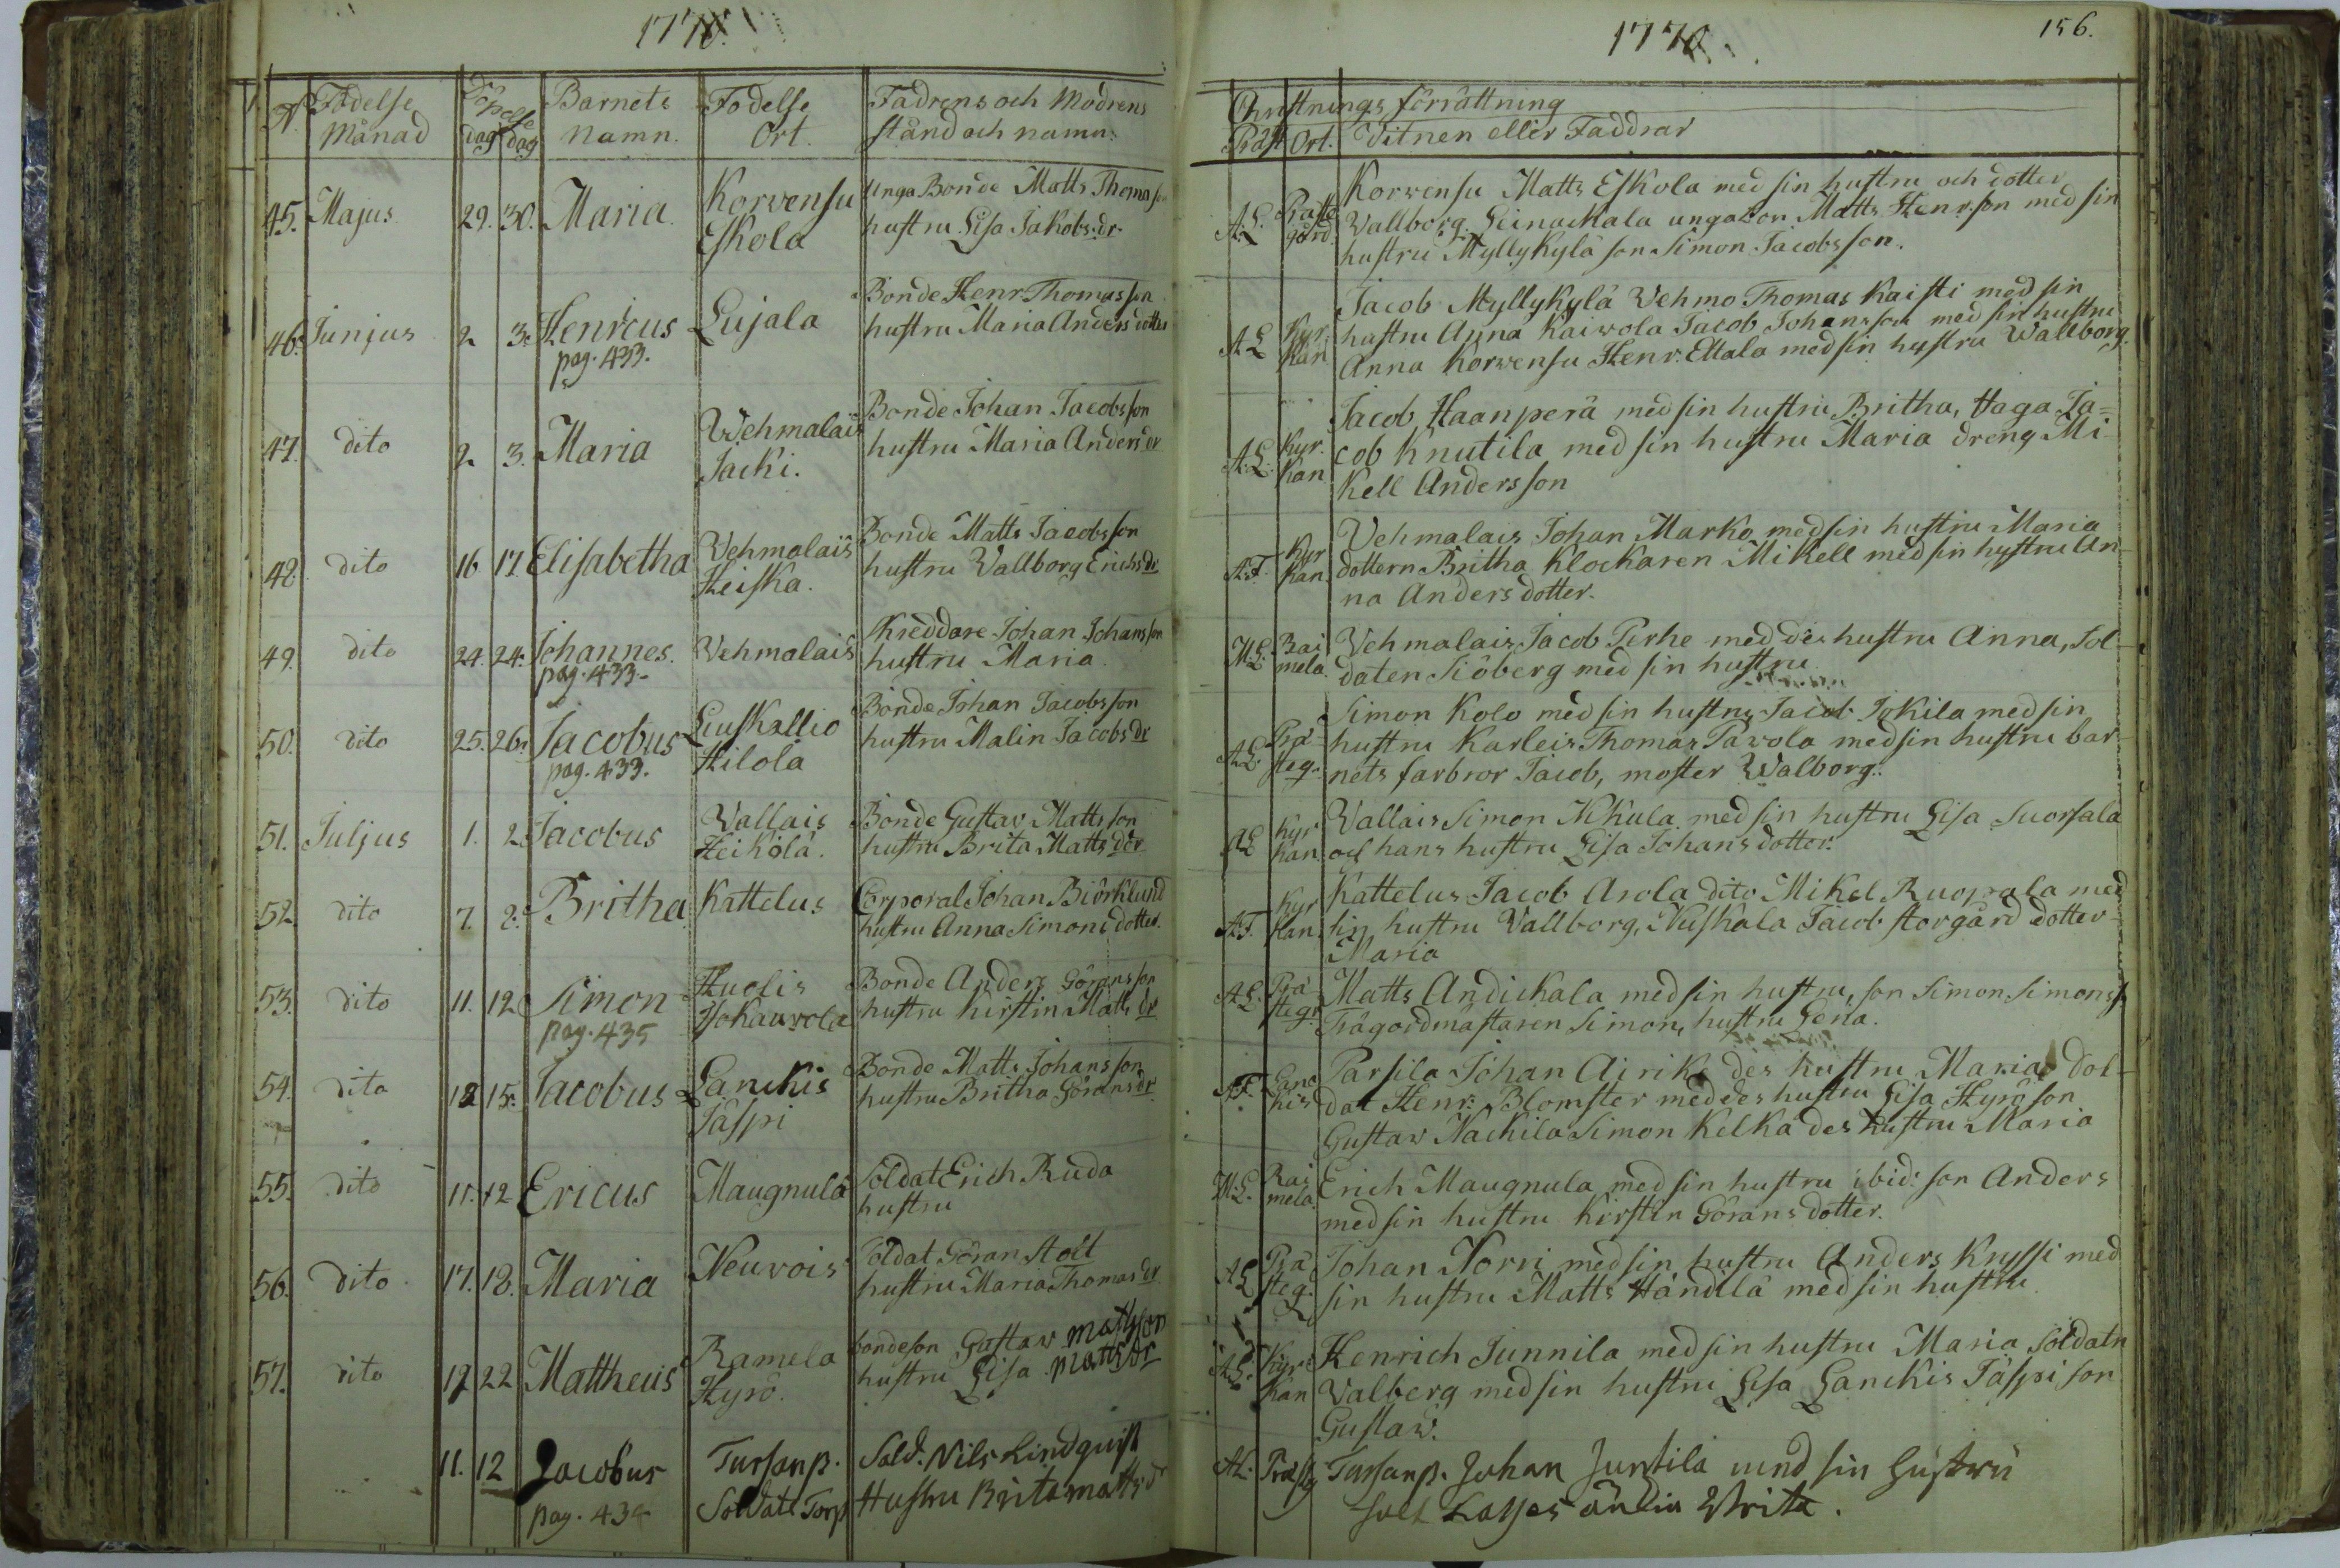 1770.
N. Födelse Månad dag Döpelse dag Barnets Namn. Födelse Ort. Fadrens och Modrens stånd och namn:
45. Majus 29. 30. Maria Korvensu Unga Bonde Matts Thomasson
Eskola hustru Lisa Jakobs dr.
46. Junjus 2 3. Henricus Lujala Bonde Henr Thomasson
pag. 433. hustru Maria Anders dotter
47. dito 2 3. Maria Wehmalais Bonde Johan Jacobsson
Jacki. hustru Maria Anders dr
48. dito 16 17 Elisabetha Vehmalais Bonde Matts Jacobsson
Heiska. hustru Vallborg Erichs dr
49. dito 24. 24. Johannes. Vehmalais Skreddare Johan Johansson
pag. 433. hustru Maria
50. dito 25. 26. Jacobus Liuskallio Bonde Johan Jacobsson
pag. 433. Hilola hustru Malin Jacobs dr
51. Juljus 1. 2. Jacobus Vallais Bonde Gustav Mattsson
Heikola. hustru Brita Matts dr
52. dito 7. 8. Britha Kattelus Corporal Johan Biörklund
hustru Anna Simons dotter.
53. dito 11. 12 Simon Huolis Bonde Anders Göransson
pag. 435 hustru Kirstin Matts dr
54. dito 15. Jacobus Lanckis Bonde Matts Johansson
Jäspi hustru Britha Görans dr
55. dito 11. 12 Ericus Maugnula Soldat Erich Ruda
hustru
56. dito 17. 18. Maria Neuvois Soldat Göran Stolt
hustru Maria Thomas dr
57. dito 22 Mattheus Ramela bondeson Gustaw Matsson
Hyrö. hustru Lisa Matts dr
11. 12 Jacobus Tursanp. Sold. Nils Lindquist
pag. 434 Soldate Torp Hustru Brita matts dr
1770. 156.
Christnings förrättning
Präst Ort. Vitnen eller Faddrar
A.L. Prästegård. Korvensu Matts Eskola med sin hustru och dotter
Vallborg. Leinackala ungabon Matts Henr.son med sin
hustru Myllykylä son Simon Jacobsson.
A.L. Kyrkan Jacob Myllykylä Vehmo Thomas Kaisti med sin
hustru Anna Kaiwola Jacob Johansson med sin hustru
Anna Korvensu Henr. Ettala med sin hustru Wallborg.
A.L. Kyrkan Jacob Haanperä med sin hustru Britha, Haga Ja=
cob Knutila med sin hustru Maria dreng Mi-
kell Andersson
A.F. Kyrkan Vehmalais Johan Marko med sin hustru Maria
dottern Britha Klockaren Mikell med sin hustru An-
na Anders dotter.
M.L. Raimela Vehmalais Jacob Pirhe med des hustru Anna, Sol-
daten Siöberg med sin hustru
A.L. Prästeg. Simon Kolo med sin hustru Jacob Jokila med sin
hustru Karleis Thomas Pavola med sin hustru bar-
nets farbror Jacob, moster Walborg.
A.L. Kyrkan Vallais Simon Nikula med sin hustru Lisa Suorsala
och hans hustru Lisa Johans dotter.
A.F. Kyrkan. Kattelus Jacob Arola dito Mikel Ruopala med
sin hustru Vallborg, Nuskala Jacob storgård dotter
Maria
A.L. Prästegr Matts Andickala med sin hustru, son Simon Simonss.
Trägordmästaren Simon, hustru Lena.
A.F. Lanckis Parsila Johan Airike des hustru Maria Sol-
dat Henr: Blomster med des hustru Lisa Hyrö son
Gustaw Nackila Simon Kelka des hustru Maria
M.L. Raimela Erich Maugnula med sin hustru ibid: son Anders
med sin hustru Kirstin Görans dotter.
A.L. Prästeg. Johan Norri med sin hustru Anders Knussi med
sin hustru Matts Händilä med sin hustru
A.L. Kyrkan Henrich Junnila med sin hustru Maria Soldatn
Valberg med sin hustru Lisa Lanckis Jäspi son
Gustaw.
A.L. Prästg Tursanp. Johan Juntila med sin hustru